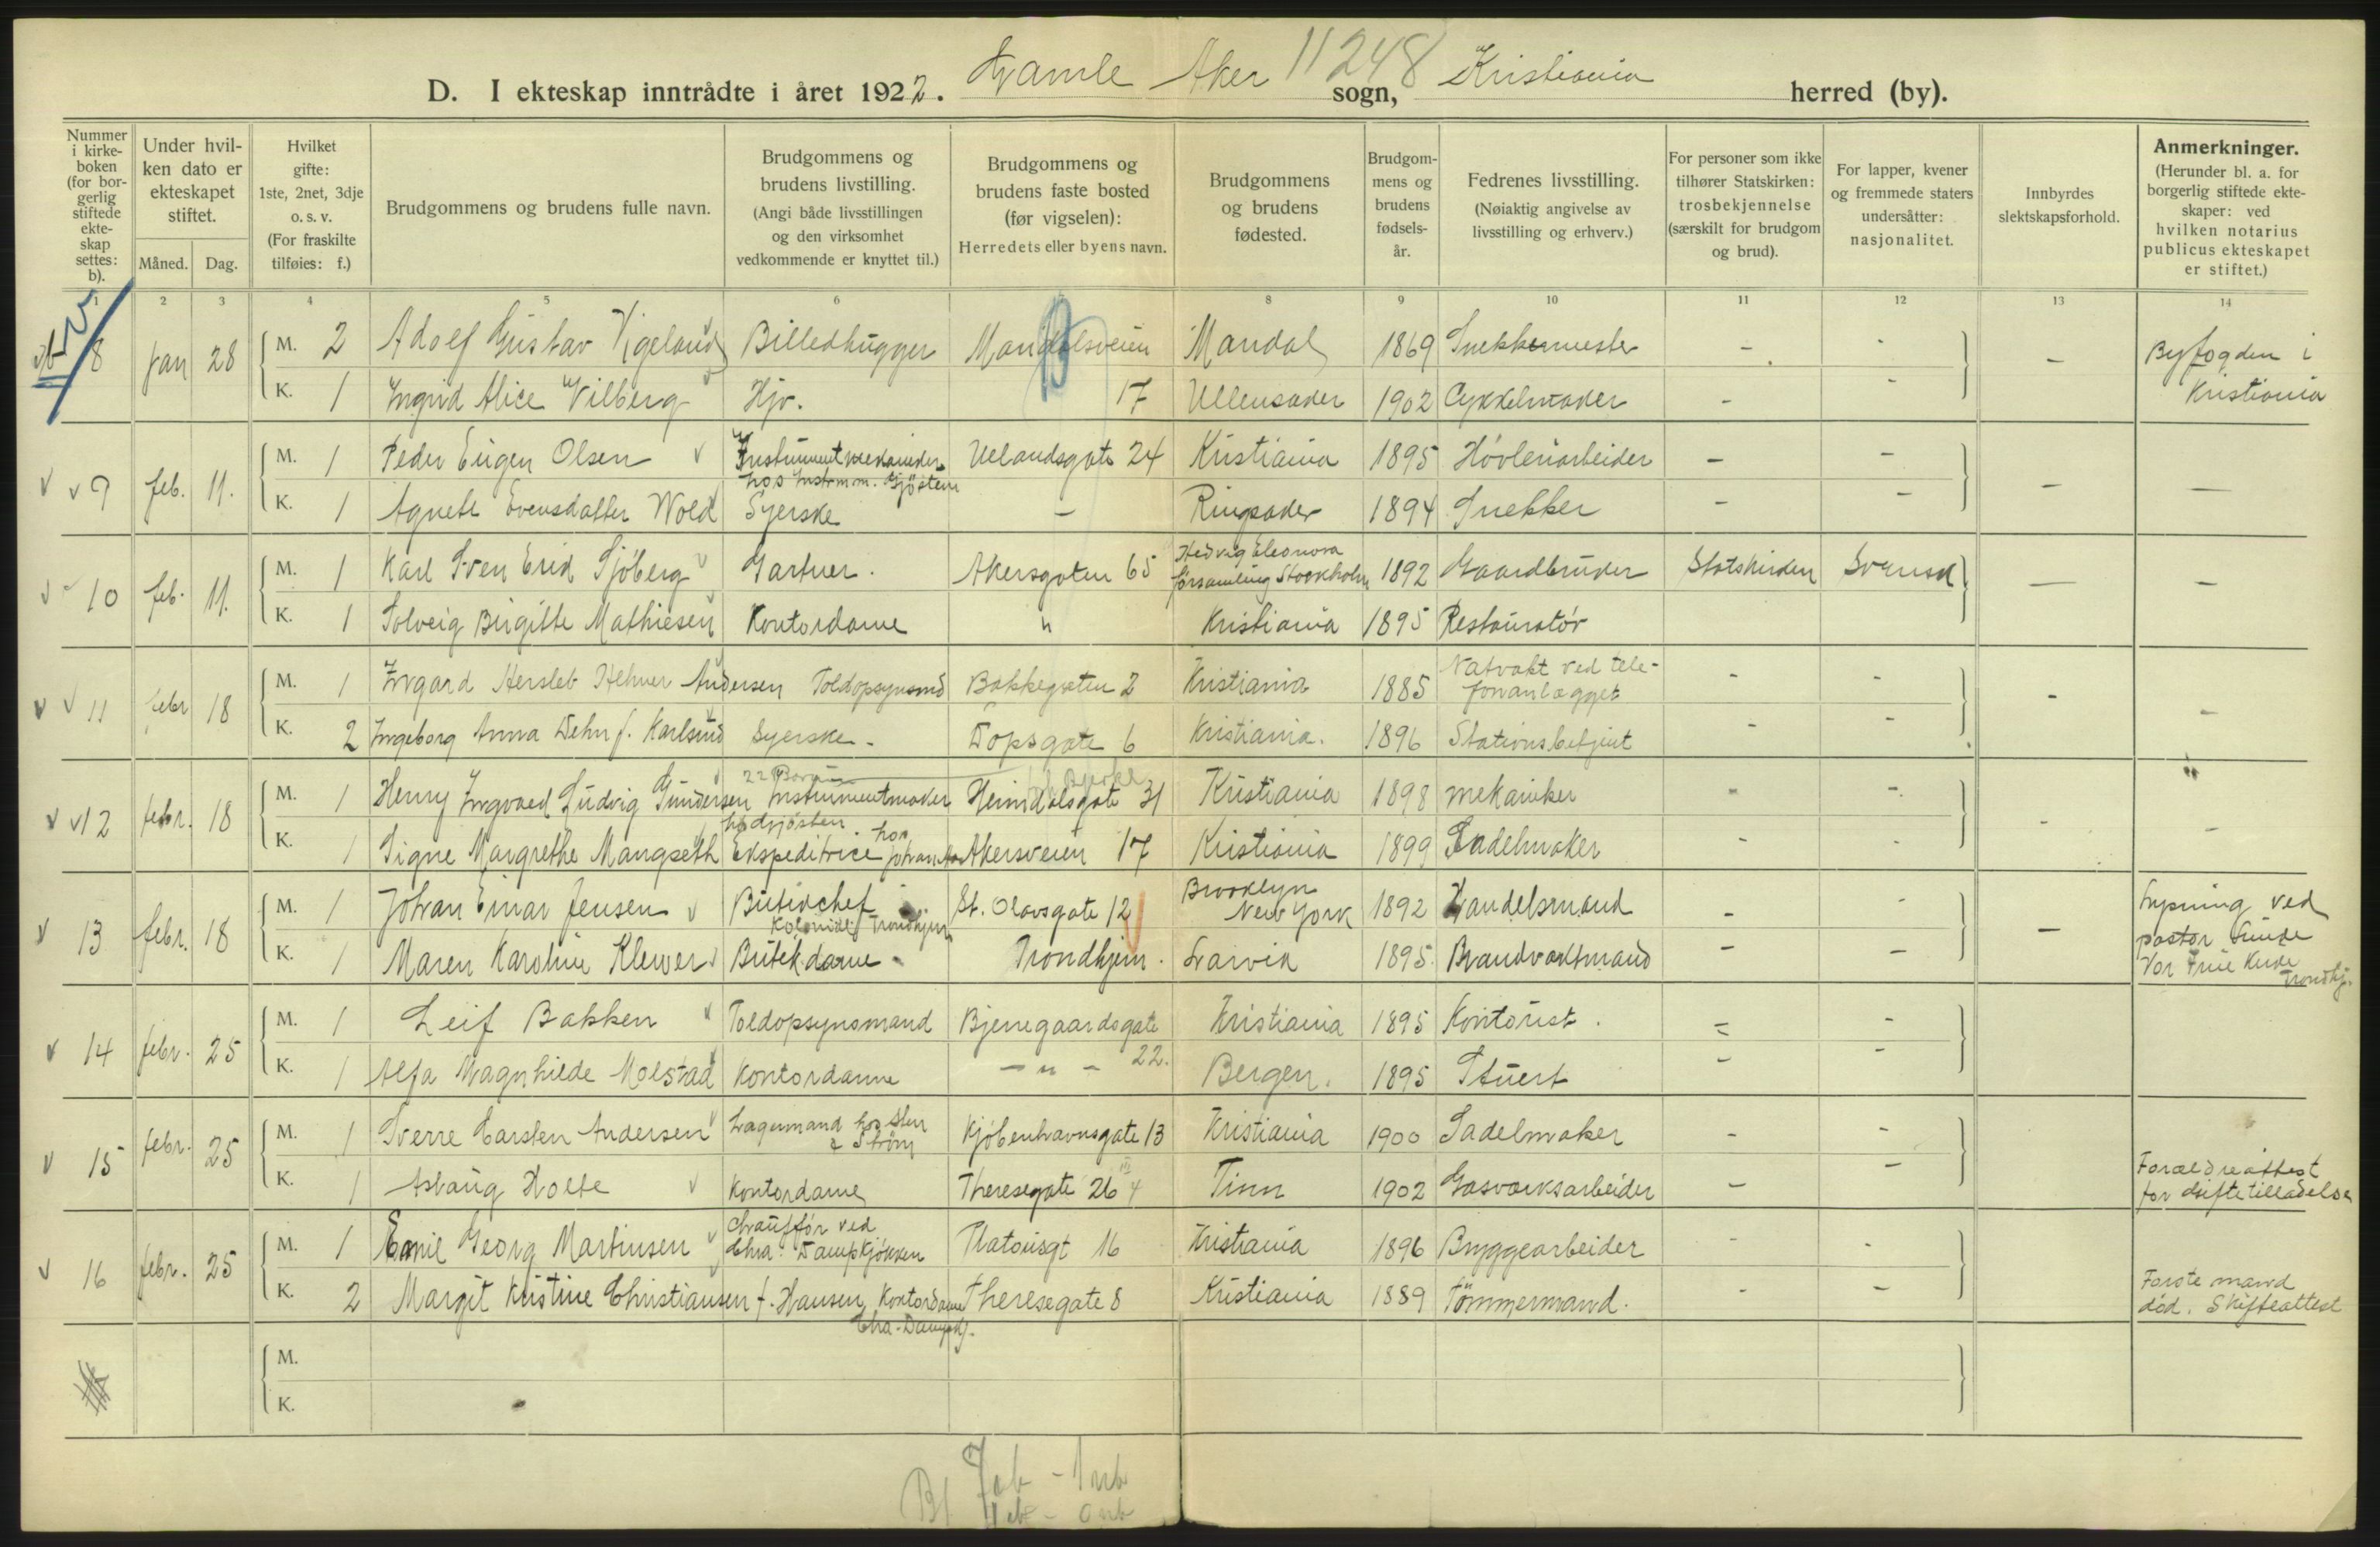 D. I ekteskap inntrådte i året 1922. Gamle Aker sogn, Kristiania herred (by).
11248
Nummer i kirkeboken (for borgerlig stiftede ekteskap settes: b).
Under hvilken dato er ekteskapet stiftet.
Måned. Dag.
Hvilket gifte: 1ste, 2net, 3dje o. s. v. (For fraskilte tilføies: f.)
Brudgommens og brudens fulle navn.
Brudgommens og brudens livstilling. (Angi både livsstillingen og den virksomhet vedkommende er knyttet til.)
Brudgommens og brudens faste bosted (før vigselen): Herredets eller byens navn.
Brudgommens og brudens fødested.
Brudgommens og brudens fødselsår.
Fedrenes livsstilling. (Nøiaktig angivelse av livsstilling og erhverv.)
For personer som ikke tilhører Statskirken: trosbekjennelse (særskilt for brudgom og brud).
For lapper, kvener og fremmede staters undersåtter: nasjonalitet.
Innbyrdes slektskapsforhold.
Anmerkninger. (Herunder bl. a. for borgerlig stiftede ekteskaper: ved hvilken notarius publicus ekteskapet er stiftet.)
1 2 3 4 5 6 8 9 10 11 12 13 14
8 Jan 28 M. 2 Adolf Gustav Vigeland Billedhugger Mandalsveien Mandal 1869 Snekkermester - - - Byfogden i
K. 1 Ingrid Alice Vilberg Hjv. 17 Ullensaker 1902 Cykkelmaker - - Kristiania
9 feb. 11. M. 1 Peder Eugen Olsen Instrumentmekaniker Uelandsgate 24 Kristiania 1895 Høvleriarbeider - - - -
hos Instrm. Gjösteen
K. 1 Agnete Evensdatter Wold Syerske - Ringsaker 1894 Snekker - -
10 feb. 11. M. 1 Karl Sven Erik Sjöberg Gartner. Akersgaten 65 Hedvig Eleonora församling Stockholm 1892 Gaardbruker Statskirken Svensk - -
K. 1 Solveig Birgitte Mathiesen Kontordame " Kristiania 1895 Restauratör
11 febr 18 M. 1 Ingard Hersleb Helmer Andersen Toldopsynsmd Bakkegaten 2 Kristiania 1885 Natvakt ved telefonanlægget - - - -
K. 2 Ingeborg Anna Dehn f. Karlsund Syerske - Dopsgate 6 Kristiania. 1896 Stationsbetjent - -
12 febr. 18 M. 1 Henry Ingvard Ludvig Gundersen Instrumentmaker Heimdalsgate 31 Kristiania 1898 mekaniker - - - -
hos Gjösteen
K. 1 Signe Margrethe Mangseth Ekspeditrice hos Akersveien 17 Kristiania 1899 Sadelmaker - -
13 febr. 18 M. 1 Johan Einar Jensen Butikchef St. Olavsgate 12 Brooklyn New York 1892 Handelsmand - - - Lysning ved
Kolonial Trondhjem pastor Sunde
K. 1 Maren Karoline Klewer Butikdame Trondhjem. Larvik 1895. Brandvaktmand - - Vor Frue Kirke Trondhj.
14 febr. 25 M. 1 Leif Bakken Toldopsynsmand Bjerregaardsgate Kristiania 1895 Kontorist. - -
K. 1 Alfa Magnhilde Molstad Kontordame - " - 22. Bergen. 1895 Stuert - -
15 febr. 25 M. 1 Sverre Carsten Andersen Lagermand hos Sten & Ström Kjöbenhavnsgate 13 Kristiania 1900 Sadelmaker - -
K. 1 Aslaug Holte Kontordame Theresegate 26 Tinn 1902 Gasverksarbeider - - Forældreattest for giftetilladelse
16 febr. 25 M. 1 Emil Georg Martinsen Chauffør ved Chra. Dampkjøkken Platousgt 16 Kristiania 1896 Bryggearbeider - -
K. 2 Margit Kristine Christiansen f. Hansen, Kontordame Theresegate 8 Kristiania 1889 Tömmermand. - - Første mand død. Skifteattest
Chra. Dampkj.
M.
K.